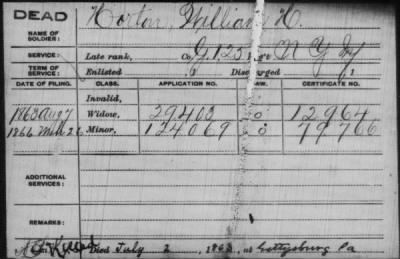 DEAD
NAME OF SOLDIER: Horton, William H.
SERVICE: Late rank, Co. G, 125 Reg't N Y Inf
TERM OF SERVICE: Enlisted , 1 Discharged , 1
DATE OF FILING. CLASS. APPLICATION NO. LAW. CERTIFICATE NO.
Invalid,
1863 Aug 7 Widow, 29403 12964
1866 Mch 26 Minor, 134069 79766
ADDITIONAL SERVICES:
REMARKS:
Killed
Died July 2, 1863, at Gettysburg Pa